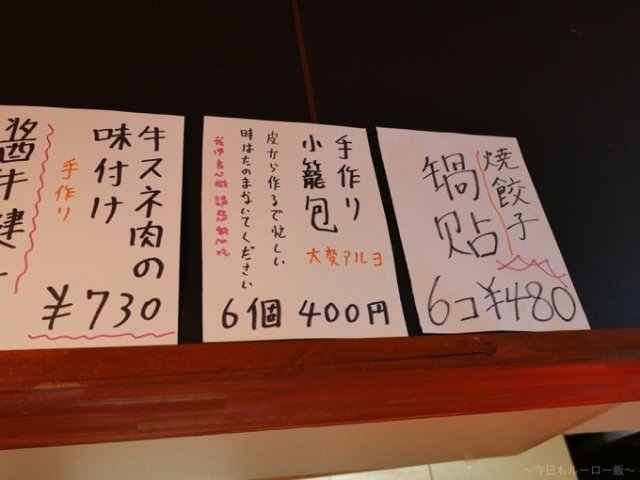 牛スネ肉の
味付け
手作り
醤牛
¥730
手作り
小籠包
大変アルヨ
皮から作るで忙しい
時はたのまないてください
6個 400円
焼餃子
鍋贴
6コ¥480
～今日もルーロー飯～